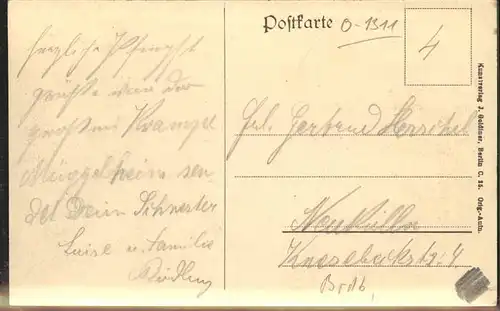 Postkarte
O-1311
4
herzliche Pfingst
grüße von der
großen Krampe
Müggelheim sen
det Deine Schwester
Luise u. Familie
Frl. Gertrud Herschel
Neukölln
Knesebeckstr. 4
Brdb,
Kunstverlag J. Goldiner, Berlin C. 25. Orig.-Aufn.